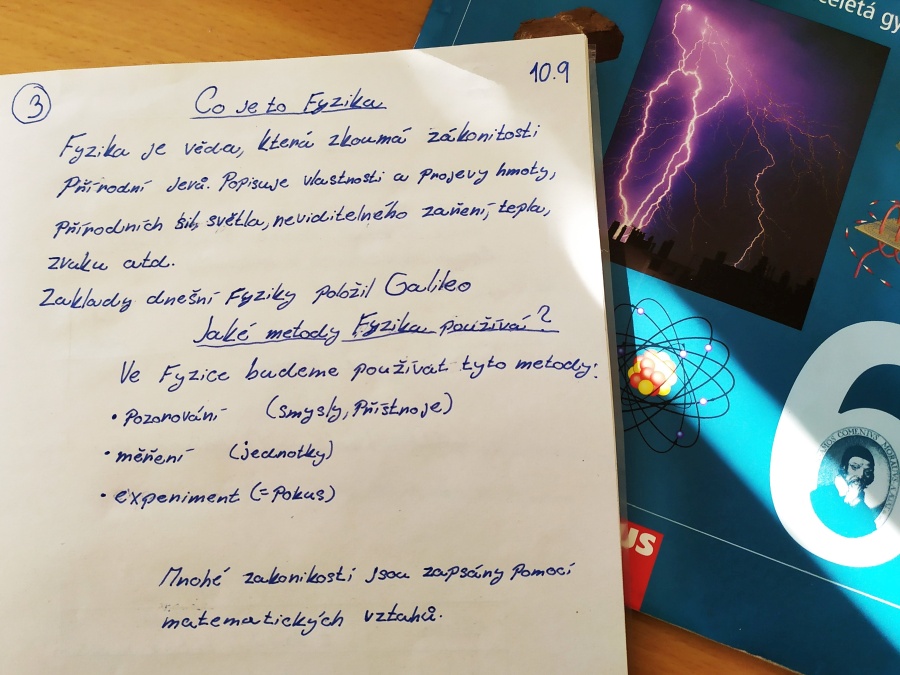 3
10.9
Co je to Fyzika
Fyzika je věda, která zkoumá zákonitosti
Přírodní jevů. Popisuje vlastnosti a projevy hmoty,
Přírodních sil, světla, neviditelného záření, tepla,
zvuku atd.
Zaklady dnešní Fyziky položil Galileo
Jaké metody Fyzika používá?
Ve Fyzice budeme používat tyto metody:
• Pozorování (smysly, Přístroje)
• měření (jednotky)
• experiment (= Pokus)
Mnohé zakonikosti jsou zapsány Pomocí
matematických vztahů.
celetá gy
6
MOS COMENIVS MORAVVS A
US